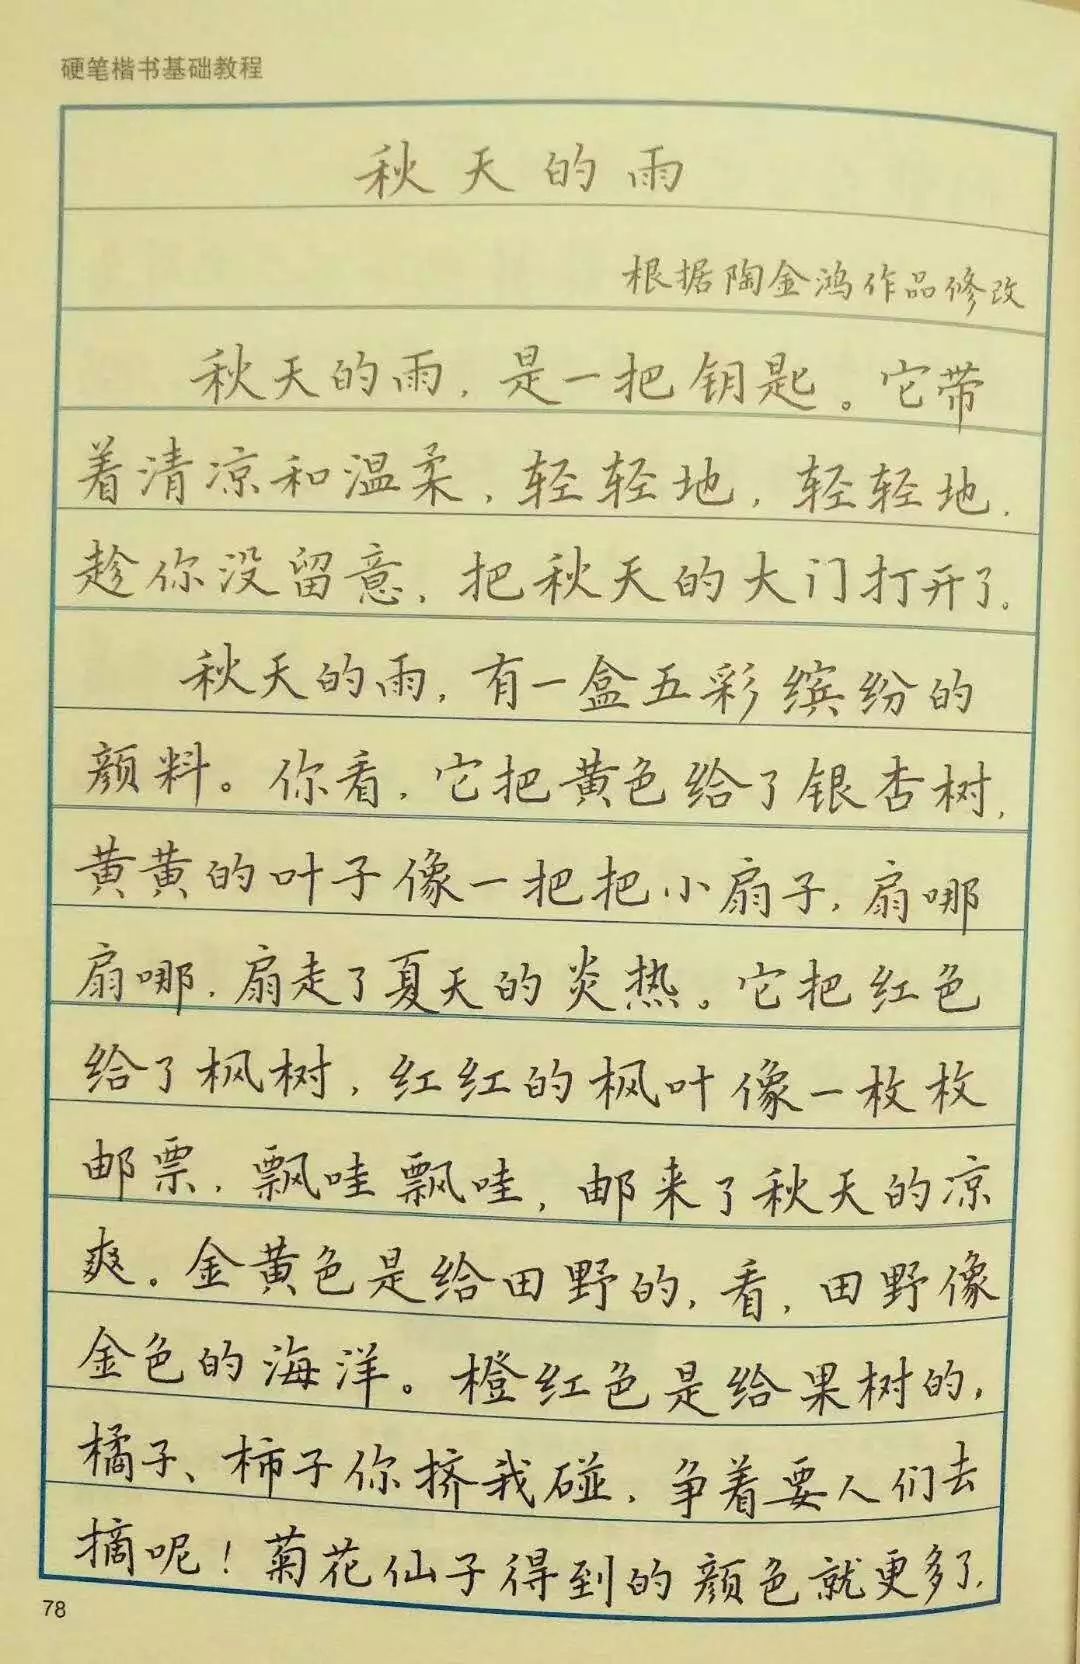 硬笔楷书基础教程
秋天的雨
根据陶金鸿作品修改
秋天的雨，是一把钥匙。它带
着清凉和温柔，轻轻地，轻轻地，
趁你没留意，把秋天的大门打开了。
秋天的雨，有一盒五彩缤纷的
颜料。你看，它把黄色给了银杏树，
黄黄的叶子像一把把小扇子，扇哪
扇哪，扇走了夏天的炎热。它把红色
给了枫树，红红的枫叶像一枚枚
邮票，飘哇飘哇，邮来了秋天的凉
爽。金黄色是给田野的，看，田野像
金色的海洋。橙红色是给果树的，
橘子、柿子你挤我碰，争着要人们去
摘呢！菊花仙子得到的颜色就更多了，
78